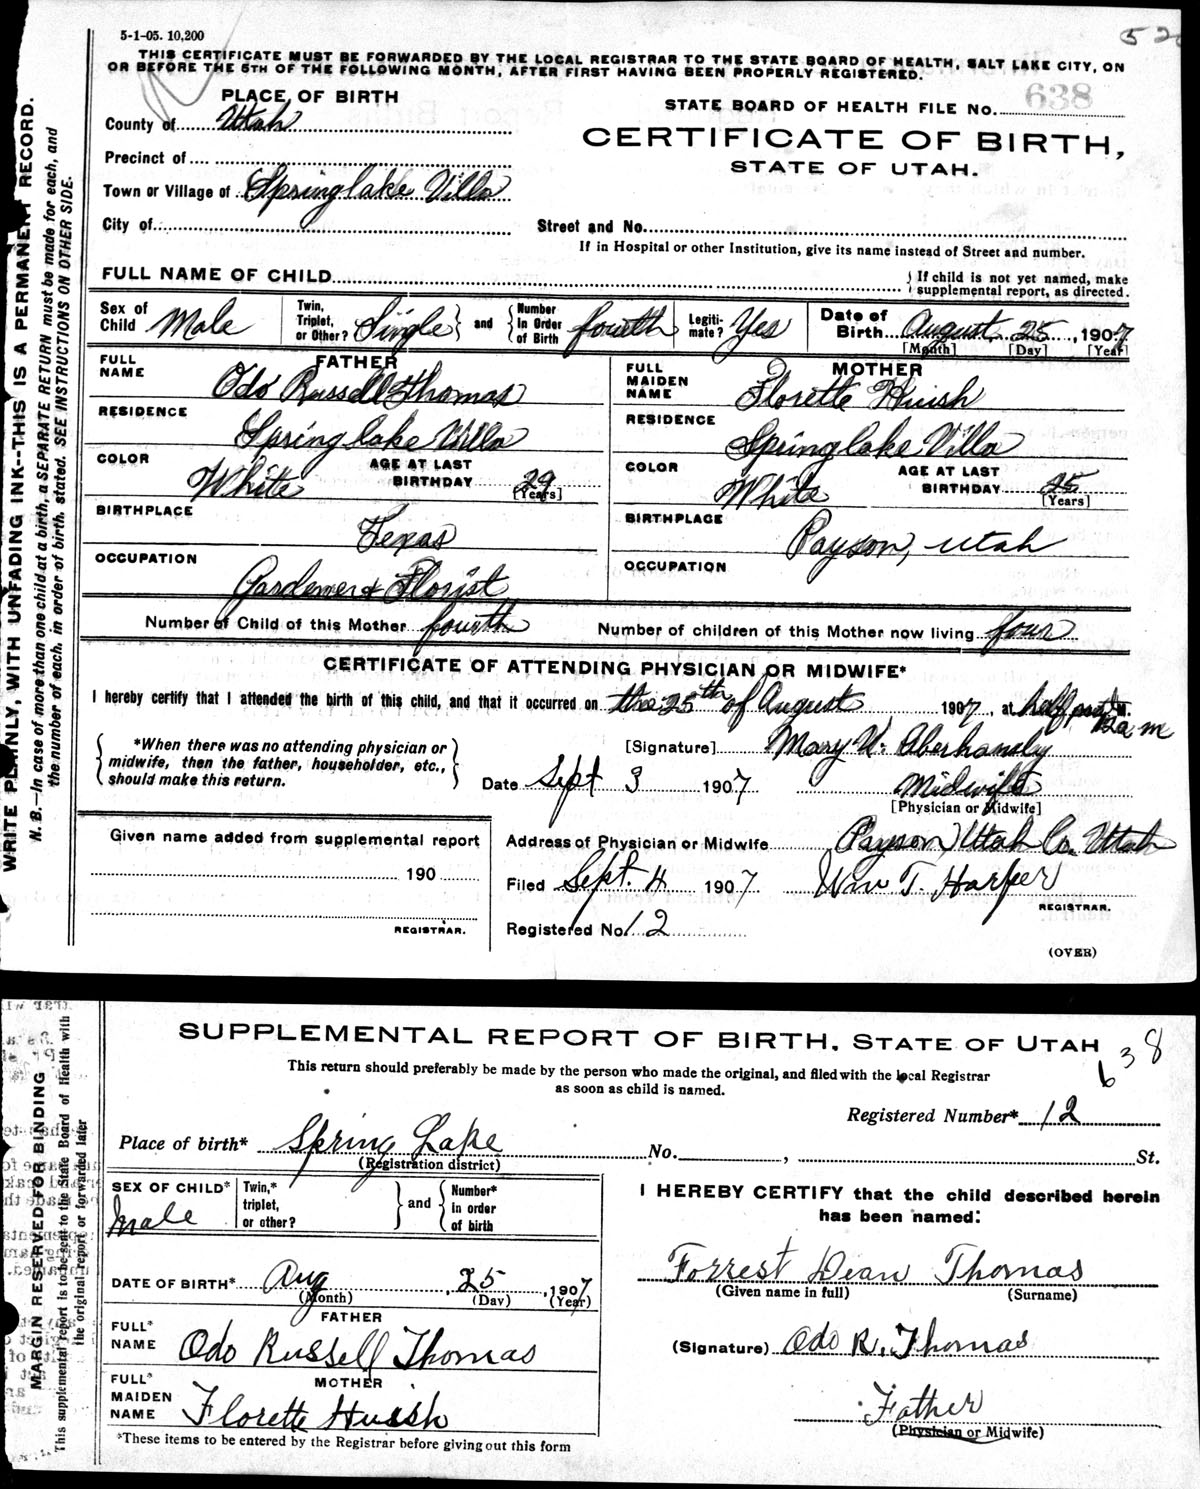 5-1-05. 10,200
520
THIS CERTIFICATE MUST BE FORWARDED BY THE LOCAL REGISTRAR TO THE STATE BOARD OF HEALTH, SALT LAKE CITY, ON
OR BEFORE THE 5TH OF THE FOLLOWING MONTH, AFTER FIRST HAVING BEEN PROPERLY REGISTERED.
PLACE OF BIRTH
STATE BOARD OF HEALTH FILE No. 638
County of Utah
CERTIFICATE OF BIRTH,
STATE OF UTAH.
Precinct of
Town or Village of Springlake Villa
City of
Street and No.
If in Hospital or other Institution, give its name instead of Street and number.
FULL NAME OF CHILD
{ If child is not yet named, make
supplemental report, as directed.
Sex of Child Male
Twin, Triplet, or Other? Single } and { Number In Order of Birth fourth
Legiti-mate? Yes
Date of Birth August 25, 1907
[Month] [Day] [Year]
FATHER
FULL NAME Odo Russell Thomas
RESIDENCE Springlake Villa
COLOR White
AGE AT LAST BIRTHDAY 29 [Years]
BIRTHPLACE Texas
OCCUPATION Gardener & Florist
MOTHER
FULL MAIDEN NAME Florette Huish
RESIDENCE Springlake Villa
COLOR White
AGE AT LAST BIRTHDAY 25 [Years]
BIRTHPLACE Payson, Utah
OCCUPATION
Number of Child of this Mother fourth
Number of children of this Mother now living four
CERTIFICATE OF ATTENDING PHYSICIAN OR MIDWIFE*
I hereby certify that I attended the birth of this child, and that it occurred on the 25th of August 1907, at half past M.
a m
{ *When there was no attending physician or
midwife, then the father, householder, etc.,
should make this return. }
[Signature] Mary U. Aberhansly
Date Sept 3 1907
Midwife
[Physician or Midwife]
Given name added from supplemental report
190
REGISTRAR.
Address of Physician or Midwife Payson, Utah Co. Utah
Filed Sept. 4 1907 Wm T. Harper
REGISTRAR.
Registered No. 12
(OVER)
WRITE PLAINLY, WITH UNFADING INK--THIS IS A PERMANENT RECORD.
N. B.--In case of more than one child at a birth, a SEPARATE RETURN must be made for each, and
the number of each, in order of birth, stated. SEE INSTRUCTIONS ON OTHER SIDE.
SUPPLEMENTAL REPORT OF BIRTH, STATE OF UTAH
638
This return should preferably be made by the person who made the original, and filed with the local Registrar
as soon as child is named.
Registered Number* 12
Place of birth* Spring Lake No. , St.
(Registration district)
SEX OF CHILD* Male
Twin,* triplet, or other? } and { Number* In order of birth
I HEREBY CERTIFY that the child described herein
has been named:
DATE OF BIRTH* Aug 25, 1907
(Month) (Day) (Year)
Forrest Dean Thomas
(Given name in full) (Surname)
FATHER
FULL* NAME Odo Russell Thomas
(Signature) Odo R. Thomas
MOTHER
FULL* MAIDEN NAME Florette Huish
Father
(Physician or Midwife)
*These items to be entered by the Registrar before giving out this form
MARGIN RESERVED FOR BINDING
This supplemental report is to be sent to the State Board of Health with
the original report or forwarded later